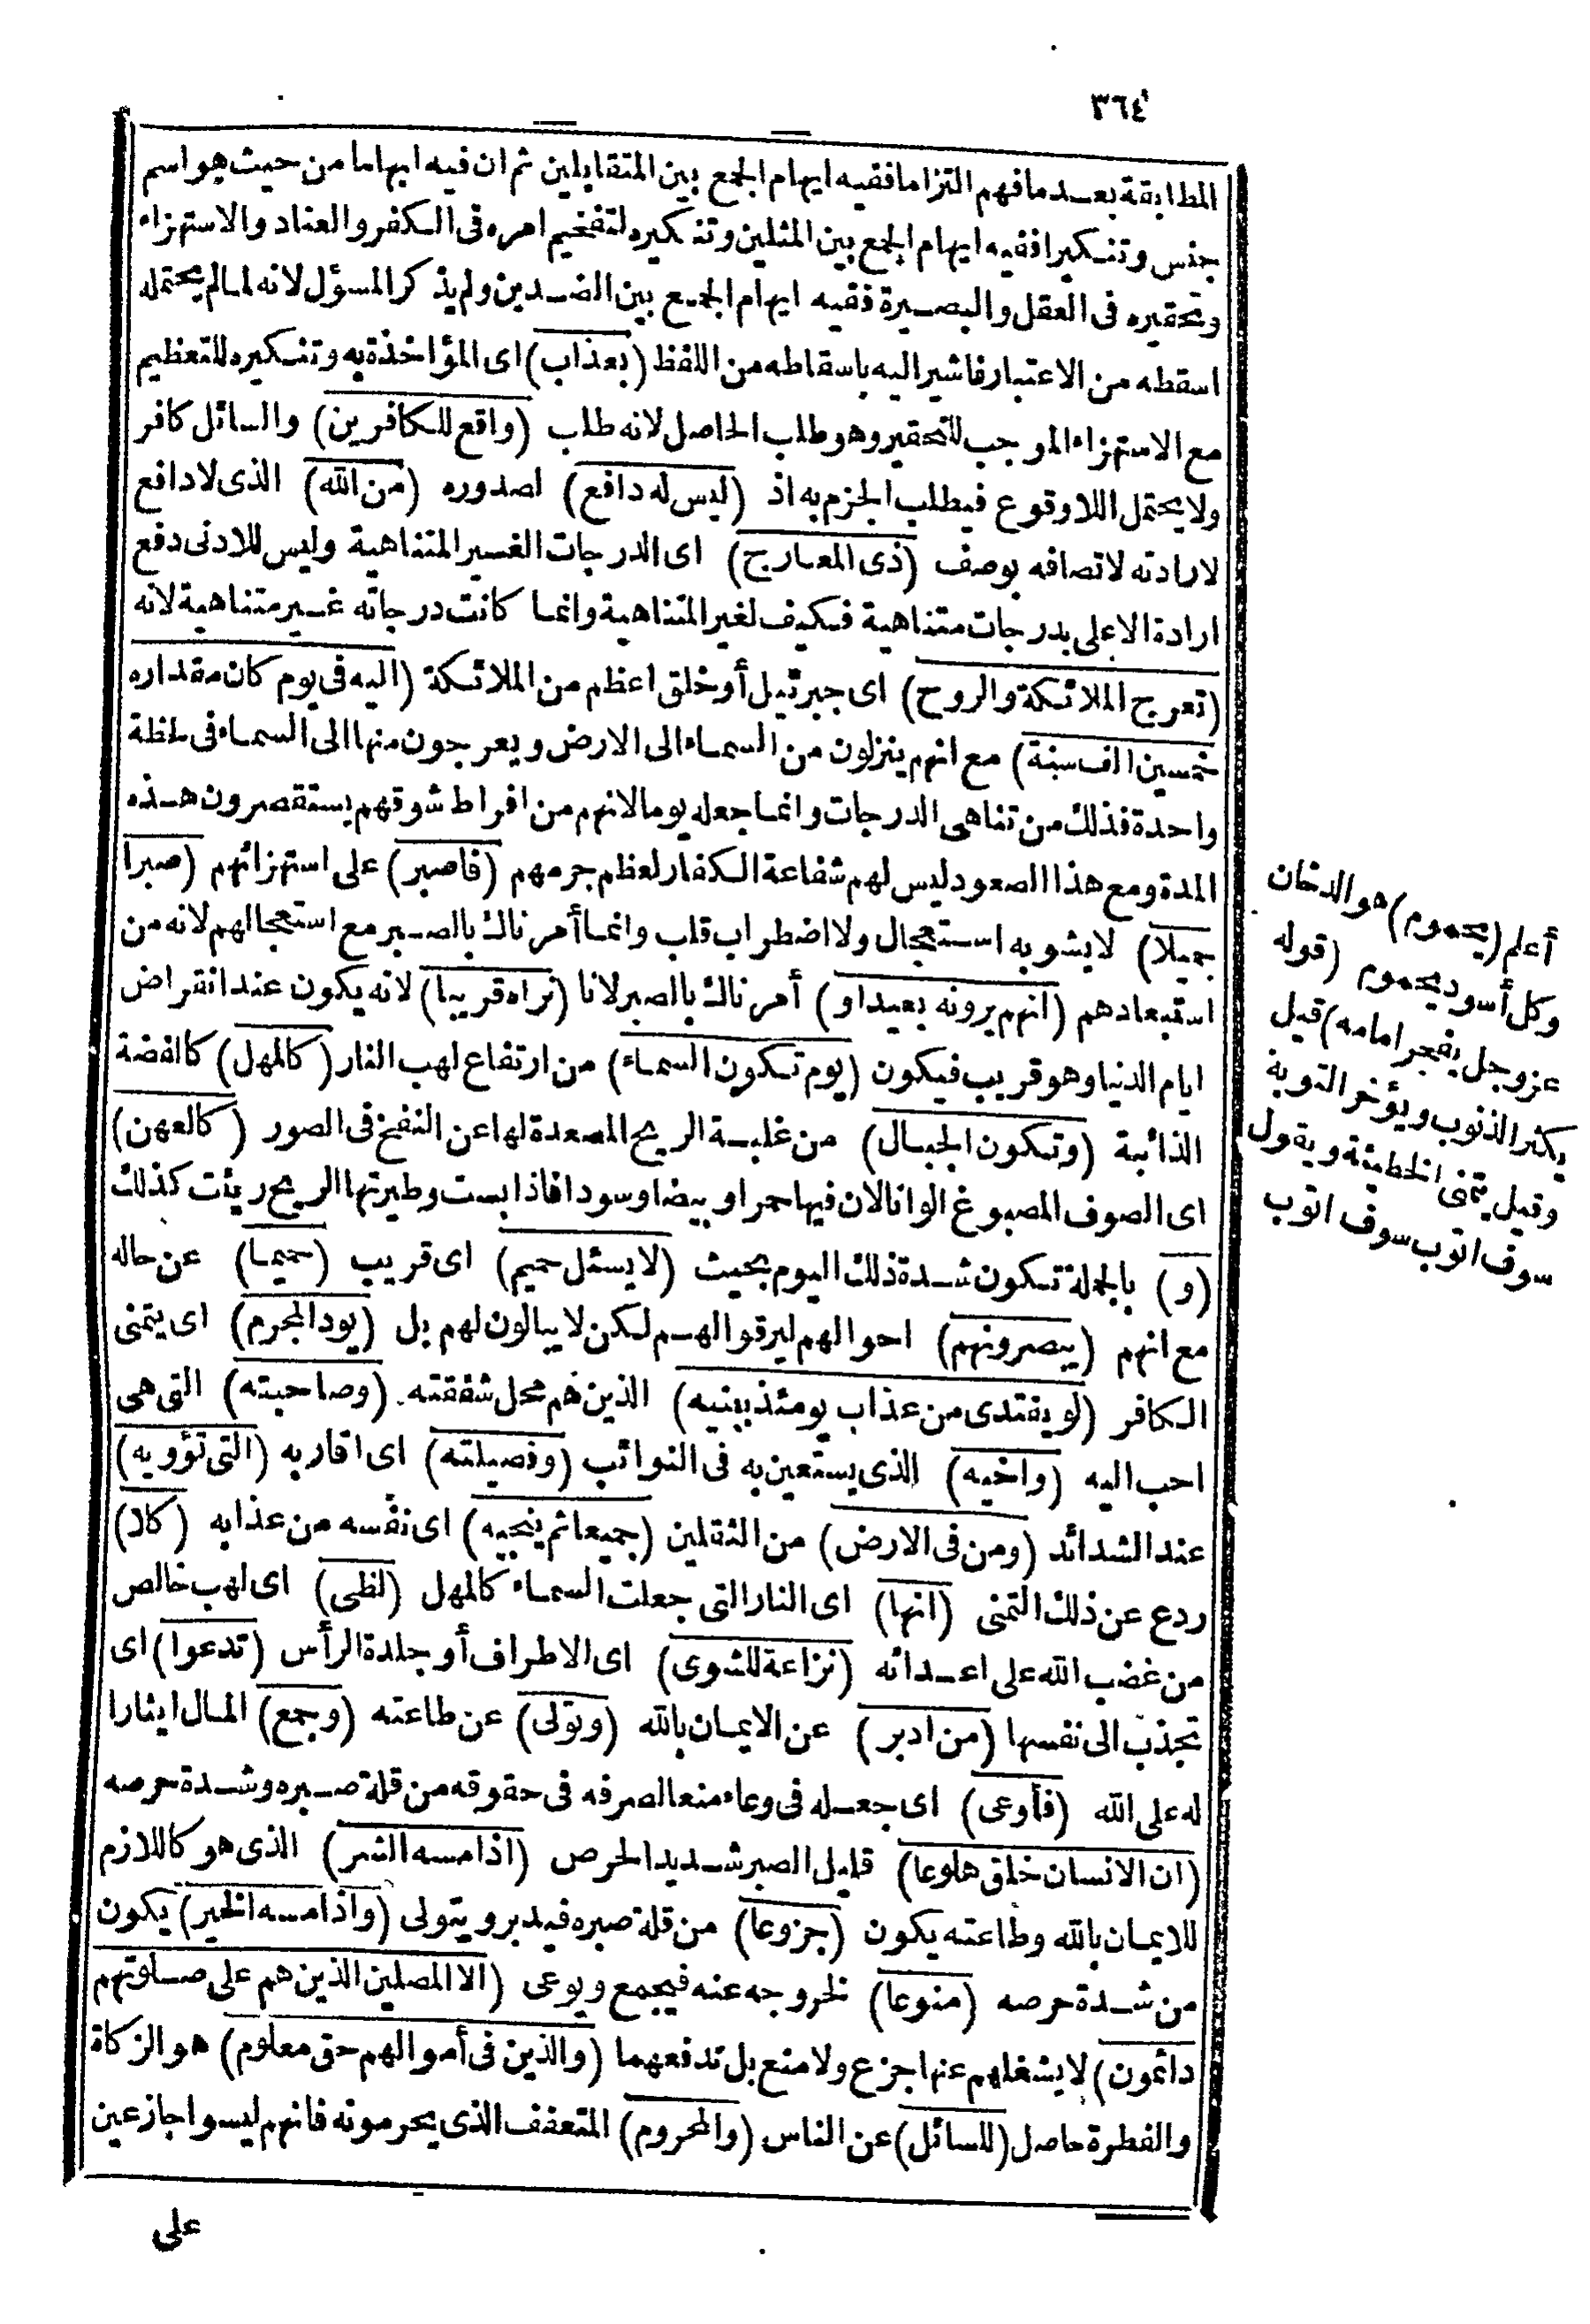 ٣٦٤
المطابقة بعد ما فهم التزاما ففيه ايهام الجمع بين المتقابلين ثم ان فيه ابهاما من حيث هو اسم
جنس وتنكيرا ففيه ايهام الجمع بين المثلين وتنكيره لتفخيم امره فى الكفر والعناد والاستهزاء
وتحقيره فى العقل والبصيرة ففيه ايهام الجمع بين الضدين ولم يذكر المسؤل لانه لما لم يحتمله
اسقطه من الاعتبار فاشير اليه باسقاطه من اللفظ (بعذاب) اى المؤاخذة به وتنكيره للتعظيم
مع الاستهزاء الموجب للتحقير وهو طلب الحاصل لانه طلب (واقع للكافرين) والسائل كافر
ولا يحتمل اللاوقوع فيطلب الجزم به اذ (ليس له دافع) لصدوره (من الله) الذى لا دافع
لارادته لاتصافه بوصف (ذى المعارج) اى الدرجات الغير المتناهية وليس للادنى دفع
ارادة الاعلى بدرجات متناهية فكيف لغير المتناهية وانما كانت درجاته غير متناهية لانه
(تعرج الملائكة والروح) اى جبرئيل أو خلق اعظم من الملائكة (اليه فى يوم كان مقداره
خمسين الف سنة) مع انهم ينزلون من السماء الى الارض ويعرجون منها الى السماء فى لحظة
واحدة فذلك من تناهى الدرجات وانما جعله يوما لانهم من افراط شوقهم يستقصرون هذه
المدة ومع هذا الصعود ليس لهم شفاعة الكفار لعظم جرمهم (فاصبر) على استهزائهم (صبرا
جميلا) لا يشوبه استعجال ولا اضطراب قلب وانما أمرناك بالصبر مع استعجالهم لانه من
استبعادهم (انهم يرونه بعيدا و) أمرناك بالصبر لانا (نراه قريبا) لانه يكون عند انقراض
ايام الدنيا وهو قريب فيكون (يوم تكون السماء) من ارتفاع لهب النار (كالمهل) كالفضة
الذائبة (وتكون الجبال) من غلبة الريح المصعدة لها عن النفخ فى الصور (كالعهن)
اى الصوف المصبوغ الوانا لان فيها حمرا وبيضا وسودا فاذا بست وطيرتها الريح ريئت كذلك
(و) بالجملة تكون شدة ذلك اليوم بحيث (لا يسئل حميم) اى قريب (حميما) عن حاله
مع انهم (يبصرونهم) احوالهم ليرقوا لهم لكن لا يبالون لهم بل (يود المجرم) اى يتمنى
الكافر (لو يفتدى من عذاب يومئذ ببنيه) الذين هم محل شفقته (وصاحبته) التى هى
احب اليه (واخيه) الذى يستعين به فى النوائب (وفصيلته) اى اقاربه (التى تؤويه)
عند الشدائد (ومن فى الارض) من الثقلين (جميعا ثم ينجيه) اى نفسه من عذابه (كلا)
ردع عن ذلك التمنى (انها) اى النار التى جعلت السماء كالمهل (لظى) اى لهب خالص
من غضب الله على اعدائه (نزاعة للشوى) اى الاطراف أو جلدة الرأس (تدعوا) اى
تجذب الى نفسها (من ادبر) عن الايمان بالله (وتولى) عن طاعته (وجمع) المال ايثارا
له على الله (فأوعى) اى جعله فى وعاء منعا لصرفه فى حقوقه من قلة صبره وشدة حرصه
(ان الانسان خلق هلوعا) قليل الصبر شديد الحرص (اذا مسه الشر) الذى هو كاللازم
للايمان بالله وطاعته يكون (جزوعا) من قلة صبره فيدبر ويتولى (واذا مسه الخير) يكون
من شدة حرصه (منوعا) لخروجه عنه فيجمع ويوعى (الا المصلين الذين هم على صلوتهم
دائمون) لا يشغلهم عنها جزع ولا منع بل تدفعهما (والذين فى أموالهم حق معلوم) هو الزكاة
والفطرة حاصل (للسائل) عن الناس (والمحروم) المتعفف الذى يحرمونه فانهم ليسوا جازعين
على
أعلم (يحموم) هو الدخان
وكل أسود يحموم (قوله
عز وجل يفجر امامه) قيل
يكثر الذنوب ويؤخر التوبة
وقيل يتمنى الخطيئة ويقول
سوف اتوب سوف اتوب